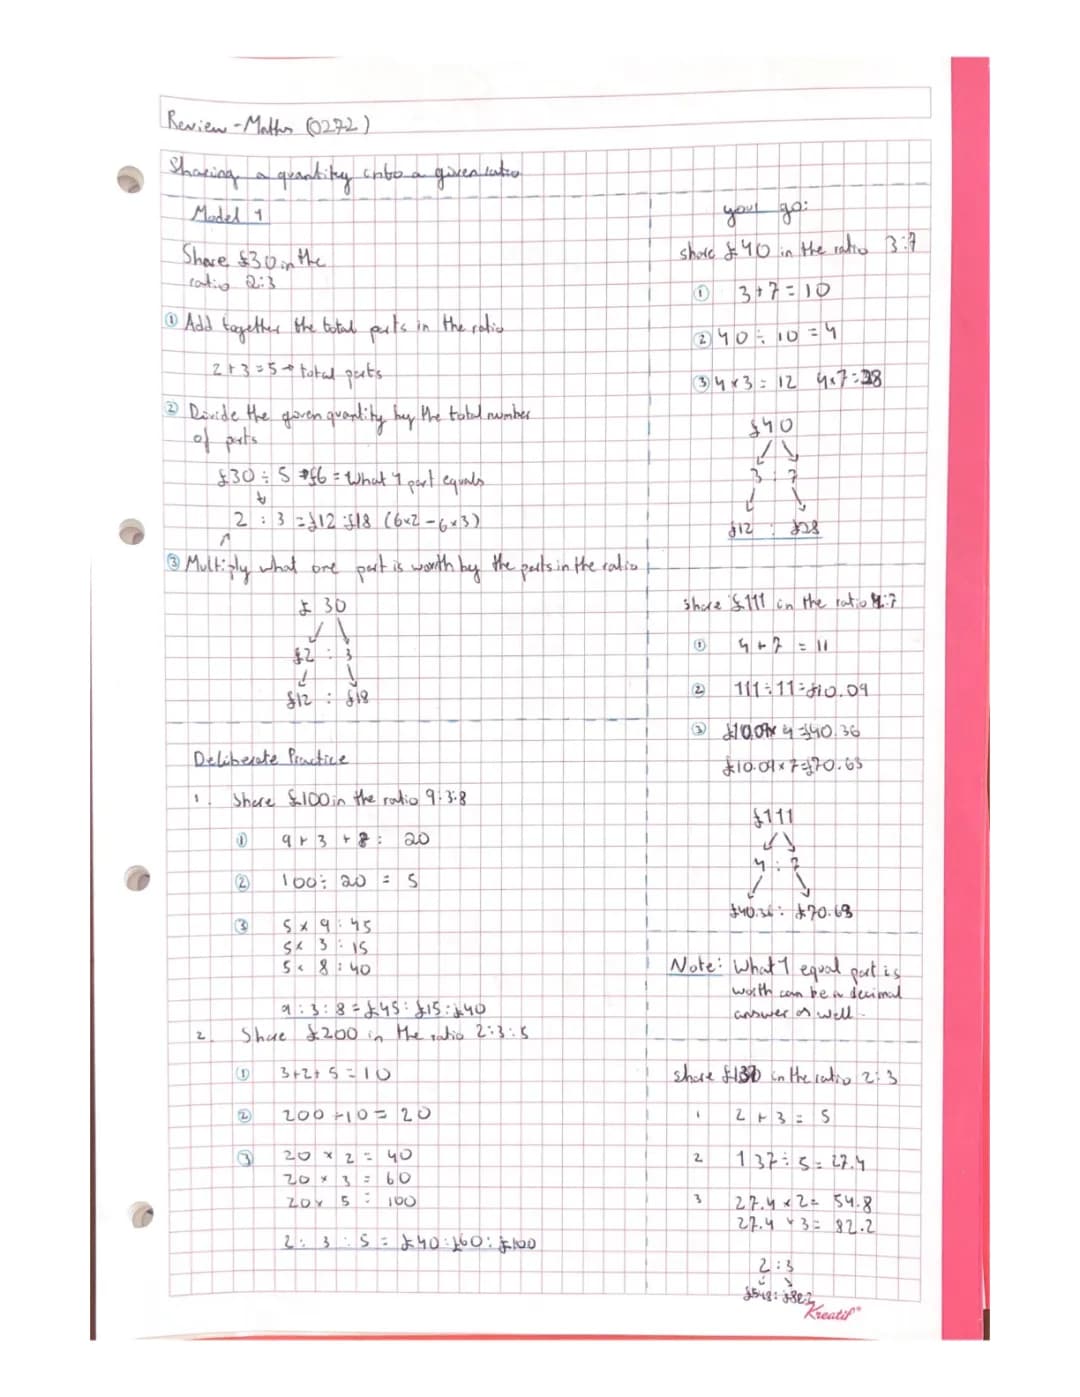 Review - Maths (0272)
Sharing a quantity into a given ratio
Model 1
Share £30 in the
ratio 2:3
① Add together the total parts in the ratio
2+3=5 → total parts
② Divide the given quantity by the total number
of parts
£30 ÷ 5 → £6 = What 1 part equals
2 : 3 = £12 : £18 (6×2 - 6×3)
③ Multiply what one part is worth by the parts in the ratio
£30
£2 : 3
£12 : £18
Deliberate Practice
1. Share £100 in the ratio 9:3:8
① 9 + 3 + 8 = 20
② 100 ÷ 20 = 5
③ 5 × 9 = 45
5 × 3 = 15
5 × 8 = 40
9 : 3 : 8 = £45 : £15 : £40
2. Share £200 in the ratio 2:3:5
① 3+2+5=10
② 200 ÷ 10 = 20
③ 20 × 2 = 40
20 × 3 = 60
20 × 5 = 100
2 : 3 : 5 = £40 : £60 : £100
your go:
share £40 in the ratio 3:7
① 3+7=10
② 40 ÷ 10 = 4
③ 4×3 = 12 4×7=28
£40
3 : 7
£12 : £28
Share £111 in the ratio 4:7
① 4 + 7 = 11
② 111 ÷ 11 = £10.09
③ £10.09 × 4 = £40.36
£10.09 × 7 = £70.63
£111
4 : 7
£40.36 : £70.63
Note: What 1 equal part is
worth can be a decimal
answer as well.
share £137 in the ratio 2:3
1 2 + 3 = 5
2 137 ÷ 5 = 27.4
3 27.4 × 2 = 54.8
27.4 × 3 = 82.2
2 : 3
£54.8 : £82.2
Kreatif